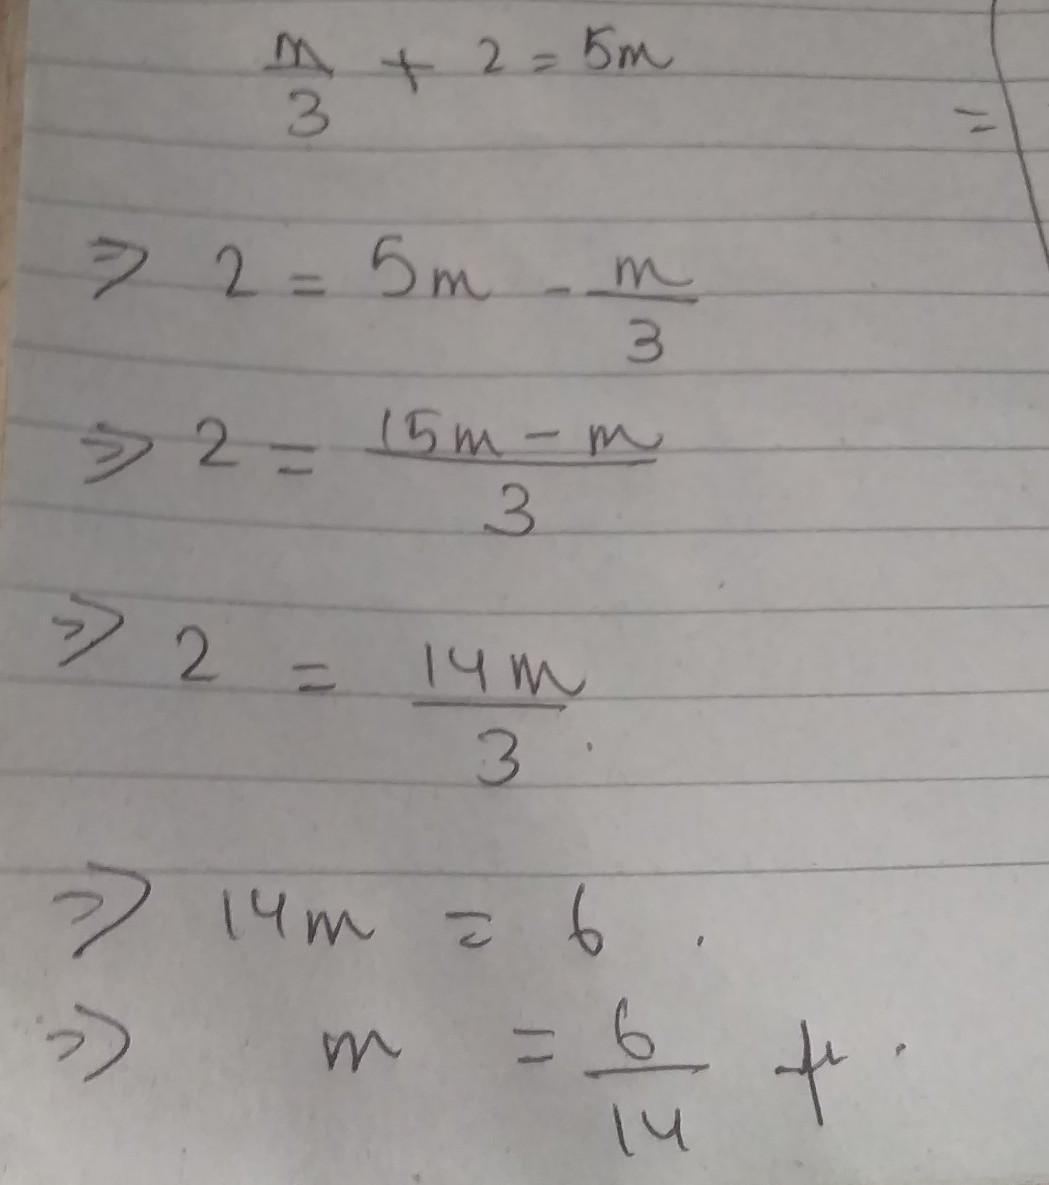 m/3 + 2 = 5m
=
⇒ 2 = 5m - m/3
⇒ 2 = 15m - m/3
⇒ 2 = 14m/3
⇒ 14m = 6
⇒ m = 6/14